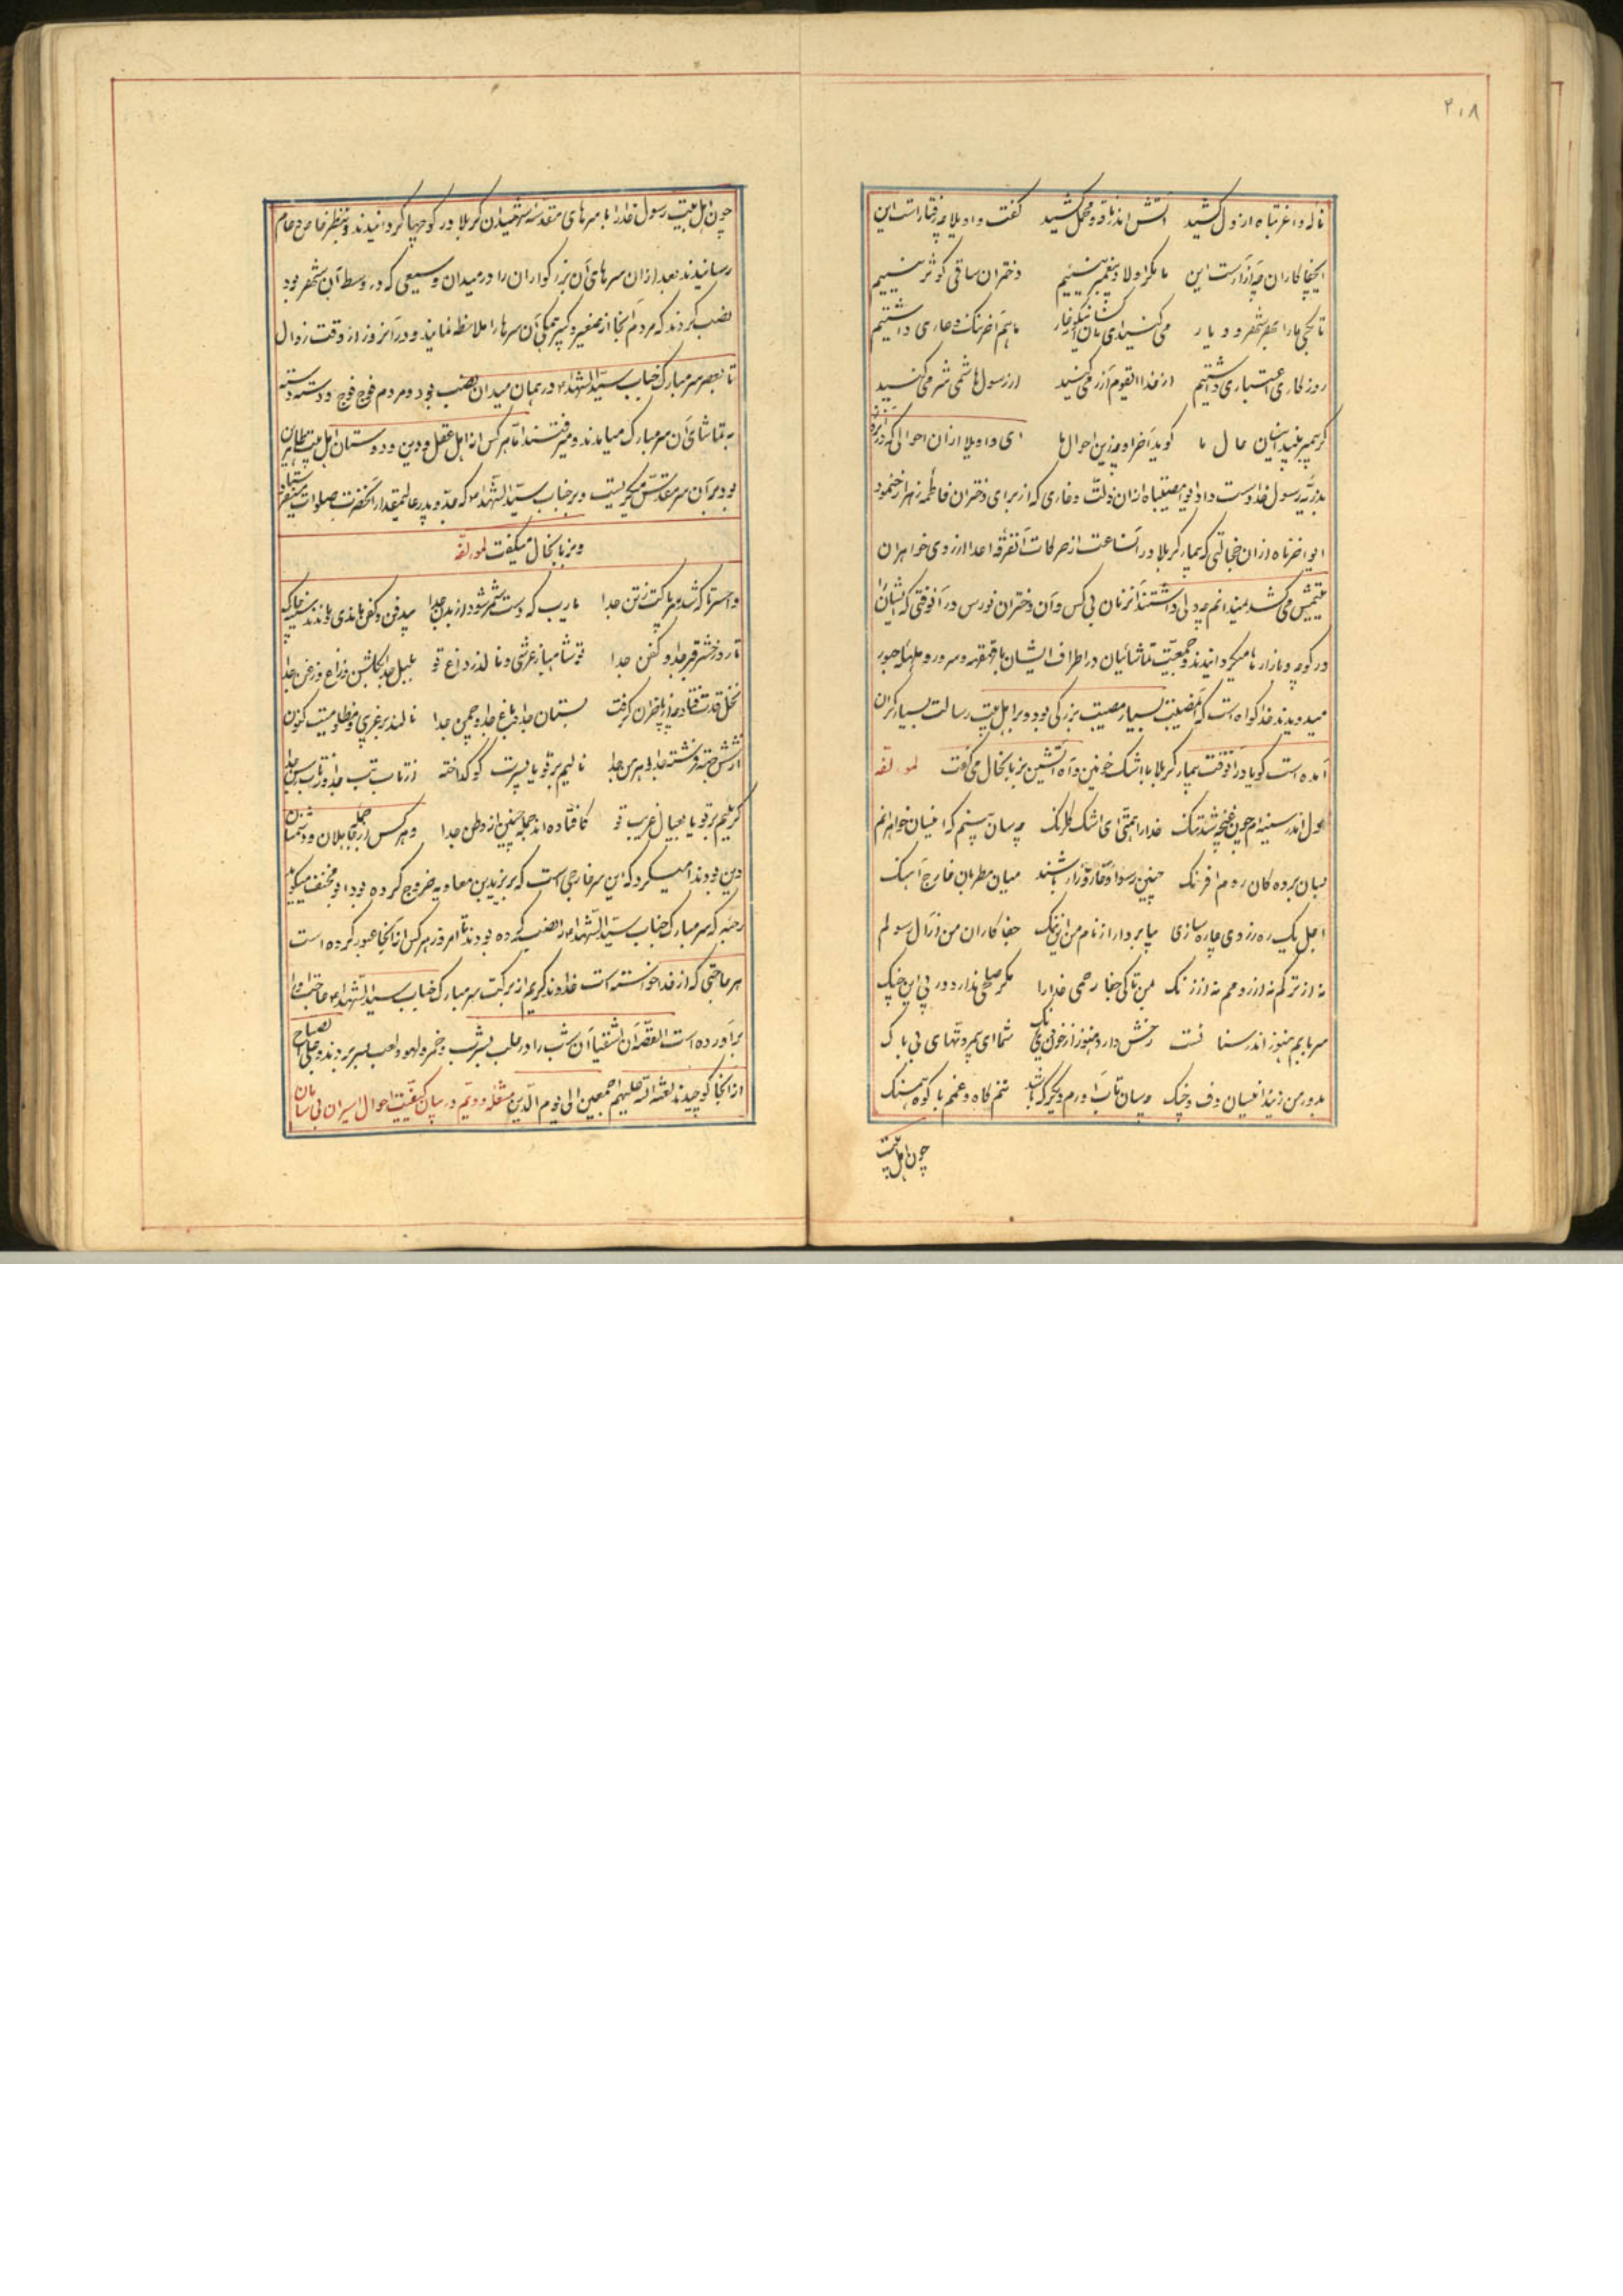 ۲۰۸
ناله واغربتاه از دل کشید آتش اندر ناقه و محمل کشید گفت واویلا چه رفتار است این
ایجفاکاران چه آزار است این ما مگر اولاد پیغمبر نییم دختران ساقی کوثر نییم
تا بکی ما را بهر شهر و دیار می کشید ای ما هم آخر ننگ و عاری داشتیم
روزگاری اعتباری داشتیم از خدا ای قوم آزرم کنید از رسول هاشمی شرمی کنید
گر پیمبر بیند اینسان حال ما گوید آخر او چه زین احوالها ای واویلا از آن احوالی که در آنروز
بذریّه رسول خدا دست داد وامصیبتاه از آن ذلّت و عاری که از برای دختران فاطمه زهرا رخ نمود
ایواخرتاه از آن خجالتی که بیمار کربلا در آنساعت از حرکات آنفرقه اعدا از روی خواهران
یتیمش می کشید نمیدانم چه دلی داشتند آنزنان بی کس و آن دختران نورس در آنوقتی که ایشانرا
در کوچه و بازارها میگردانیدند و جمعیّت تماشائیان در اطراف ایشان با قهقهه و سرور و هلهله و حبور
میدویدند خدا گواه است که آنمصیبت بسیار مصیبت بزرگی بود و بر اهل بیت رسالت بسیار گران
آمده است گویا در آنوقت بیمار کربلا با اشک خونین و آه آتشین بزبانحال می گفت لمؤلفه
دل اندر سینه ام چون غنچه شد تنگ خدا را همّتی ای اشک گلرنگ چه سان بینم که اینسان خواهرانم
بسان برده گان روم و افرنگ چنین رسوا و خار و زار باشند میان مطربان خارج آهنگ
اجل یک ره ز روی چاره سازی بیا بردار از نام من این ننگ جفا کاران من از آل رسولم
نه از ترکم نه از رومم نه از زنگ بمن تا کی جفا رحمی خدا را مگر صلحی ندارد در پی این جنگ
سر بابم هنوز اندر سنا نست رخش دارد هنوز از خون وی رنگ شما ای بی مروتهای بی باک
بدور من زنید اینسان دف و چنگ چسان تاب آورم دیگر که باشد تنم کاه و غمم با کوه همسنگ
چون اهل بیت
چون اهل بیت رسول خدا را با سرهای مقدسهٔ شهیدان کربلا در کوچها گردانیدند و بنظر خاص و عام
رسانیدند بعد از آن سرهای آن بزرگواران را در میدان وسیعی که در وسط آن شهر بود
نصب کردند که مردم آنجا از صغیر و کبیر همگی آن سرها را ملاحظه نمایند و در آنروز از وقت زوال
تا بعصر سر مبارک جناب سیّد الشهداء در همان میدان نصب بود و مردم فوج فوج و دسته دسته
به تماشای آن سر مبارک میامدند و میرفتند امّا هر کس از اهل عقل و دین و دوستان اهل بیت طاهرین
بود بر آن سر مقدّس میگریست و بر جناب سیّد الشهداء که جدّ و پدر عالیمقدار آنحضرت صلوات میفرستاد
و بزبانحال میگفت لمؤلفه
واحسرتا که شد سر پاکت ز تن جدا یا رب که دست شمر شود از بدن جدا بیدفن و کفن ماندی
تا روز حشر قبر جدا و کفن جدا تو شاهباز عرشی و نالد ز داغ تو بلبل جدا بگلشن و زاغ و زغن جدا
نخل قدت فتاد ز پا و خزان گرفت بستان جدا و باغ جدا و چمن جدا نالند بر غریبی و مظلومیت کنون
فرشته جدا اهرمن جدا نالیم بر تو یا پسرت کو گداخته از تاب تب جدا و ز تاب رسن جدا
گرییم بر تو یا بعیال غریب تو کافتاده اند جمله چنین از وطن جدا و هر کس از جمله جاهلان و دشمنان
دین بودند امید میکرد که این سر خارجی است که بر یزید بن معاویه خروج کرده بود ابو مخنف میگوید
رحبه که سر مبارک جناب سیّد الشهداء را نصب کرده بودند تا امروز هر کس از آنجا عبور کرده است
هر حاجتی که از خدا خواسته است خداوند کریم از برکت سر مبارک جناب سید الشهداء حاجت او را
برآورده است القصّه آن اشقیا آن شب را در حلب بشرب و خمر و لهو و لعب بسر بردند و علی الصباح
از آنجا کوچیدند لعنة الله علیهم اجمعین الی یوم الدّین مشعله دویّم در بیان کیفیّت احوال اسیران بی سامان